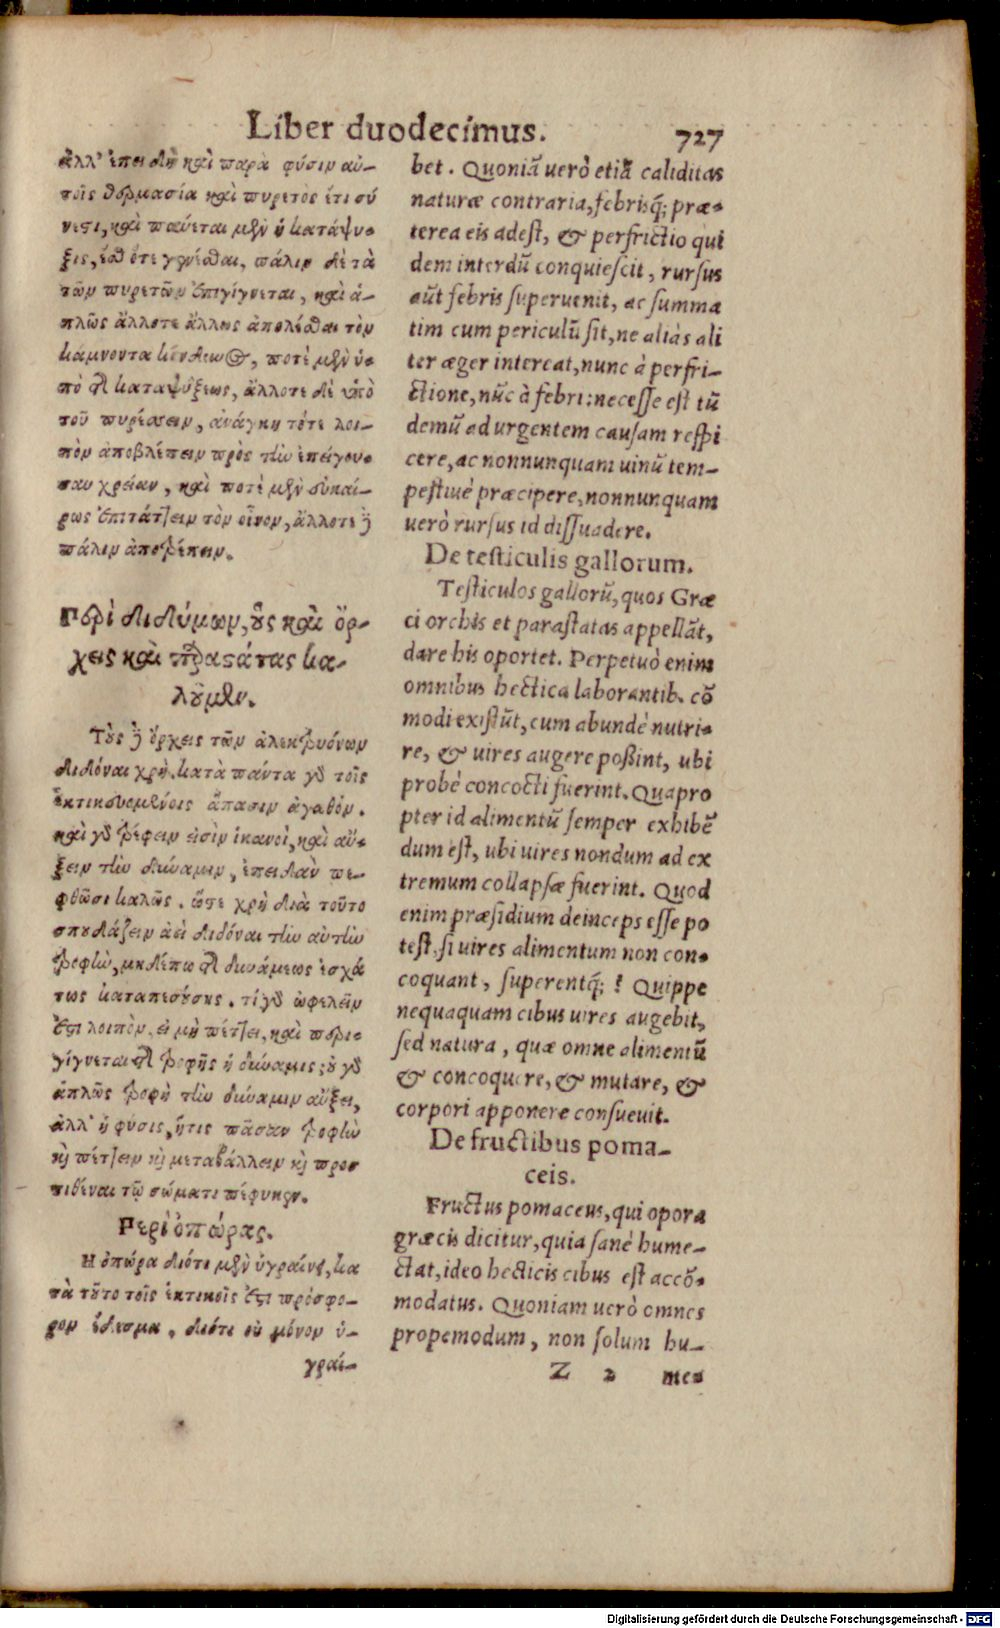 Liber duodecimus. 727
ἀλλ' ἐπειδὴ καὶ παρὰ φύσιν αὐ-
τοῖς θερμασία καὶ πυρετὸς ἔτι σύ
νεστι, καὶ παύεται μὲν ἡ κατάψυ-
ξις, ἔσθ ὅτε γενέσθαι, πάλιν δὲ τὰ
τῶν πυρετῶν ἐπιγίγνεται, καὶ ἁ-
πλῶς ἄλλοτε ἄλλως ἀπολέσθαι τὸν
κάμνοντα κίνδυνος, ποτὲ μὲν ὑ-
πὸ τῆς καταψύξεως, ἄλλοτε δὲ ὑπὸ
τοῦ πυρέσσειν, ἀνάγκη τότε λοι-
πὸν ἀποβλέπειν πρὸς τὴν ἐπείγου-
σαν χρείαν, καὶ ποτὲ μὲν εὐκαί-
ρως ἐπιτάττειν τὸν οἶνον, ἄλλοτε δὲ
πάλιν ἀποτρέπειν.
Περὶ διδύμων, οὓς καὶ ὄρ-
χεις καὶ παραστάτας κα-
λοῦμεν.
Τοὺς δὲ ὄρχεις τῶν ἀλεκτρυόνων
διδόναι χρή. κατὰ πάντα γὰρ τοῖς
ἑκτικευομένοις ἅπασιν ἀγαθόν.
καὶ γὰρ τρέφειν εἰσὶν ἱκανοὶ, καὶ αὔ-
ξειν τὴν δύναμιν, ἐπειδὰν πε-
φθῶσι καλῶς. ὥστε χρὴ διὰ τοῦτο
σπουδάζειν ἀεὶ διδόναι τὴν αὐτὴν
τροφὴν, μηδέπω τῆς δυνάμεως ἐσχά
τως καταπεσούσης. τί γὰρ ὠφελεῖν
ἔστι λοιπὸν, εἰ μὴ πέττει, καὶ περι-
γίγνεται τῆς τροφῆς ἡ δύναμις; οὐ γὰρ
ἁπλῶς τροφὴ τὴν δύναμιν αὔξει,
ἀλλ' ἡ φύσις, ἥτις πᾶσαν τροφὴν
καὶ πέττειν καὶ μεταβάλλειν καὶ προσ
τιθέναι τῷ σώματι πέφυκεν.
Περὶ ὀπώρας.
Η ὀπώρα διότι μὲν ὑγραίνει, κα
τὰ τοῦτο τοῖς ἑκτικοῖς ἐστι πρόσφο-
ρον ἔδεσμα, διότι οὐ μόνον ὑ-
γραί-
bet. Quoniã uerò etiã caliditas
naturæ contraria, febrisq́; præ-
terea eis adest, & perfrictio qui
dem interdũ conquiescit, rursus
aũt febris superuenit, ac summa
tim cum periculũ sit, ne aliàs ali
ter æger intereat, nunc à perfri-
ctione, nũc à febri: necesse est tũ
demũ ad urgentem causam respi
cere, ac nonnunquam uinũ tem-
pestiuè præcipere, nonnunquam
uerò rursus id dissuadere.
De testiculis gallorum.
Testiculos gallorũ, quos Græ
ci orchis et parastatas appellãt,
dare his oportet. Perpetuò enim
omnibus hectica laborantib. cõ
modi existũt, cum abundè nutri-
re, & uires augere poßint, ubi
probè concocti fuerint. Quapro
pter id alimentũ semper exhibẽ
dum est, ubi uires nondum ad ex
tremum collapsæ fuerint. Quod
enim præsidium deinceps esse po
test, si uires alimentum non con-
coquant, superentq́; ? Quippe
nequaquam cibus uires augebit,
sed natura, quæ omne alimentũ
& concoquere, & mutare, &
corpori apponere consueuit.
De fructibus poma-
ceis.
Fructus pomaceus, qui opora
græcis dicitur, quia sanè hume-
ctat, ideo hecticis cibus est accõ-
modatus. Quoniam uerò omnes
propemodum, non solum hu-
Z 2 me-
Digitalisierung gefördert durch die Deutsche Forschungsgemeinschaft - DFG